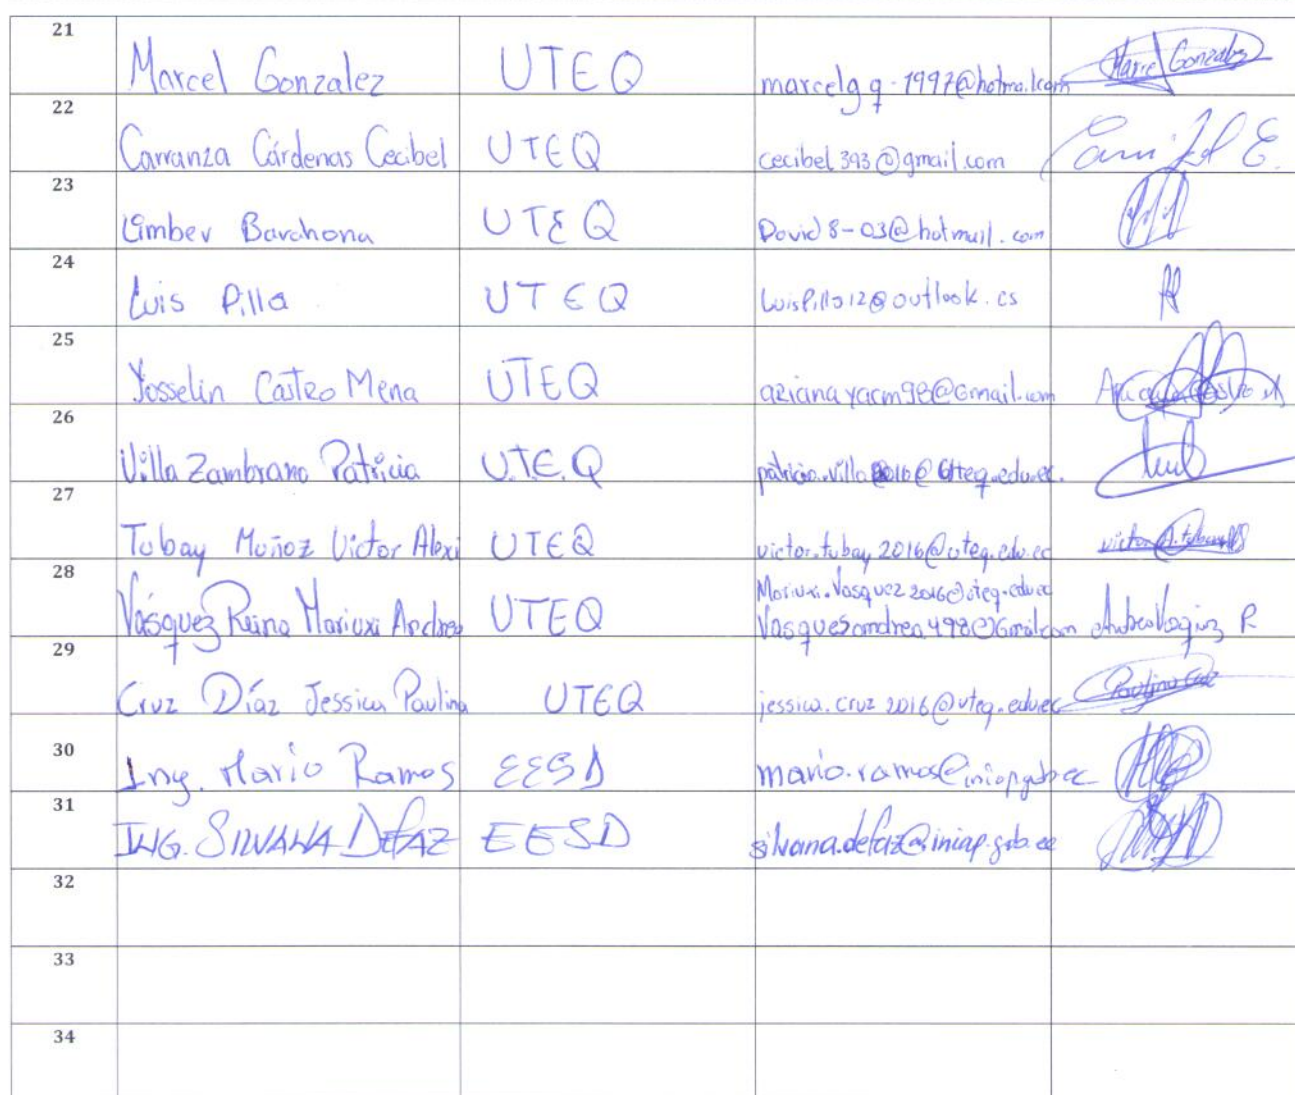 21
Marcel Gonzalez UTEQ marcelgq-1997@hotmail.com Marcel Gonzalez
22
Carranza Cárdenas Cecibel UTEQ cecibel393@gmail.com
23
Limber Barahona UTEQ David8-03@hotmail.com
24
Luis Pilla UTEQ luisPilla12@outlook.es
25
Yosselin Castro Mena UTEQ azianayacm98@Gmail.com
26
Villa Zambrano Patricia U.T.E.Q patricia.villa2016@uteq.edu.ec.
27
Tubay Muñoz Victor Alexi UTEQ victor.tubay2016@uteq.edu.ec
28
Mariuxi.Vasquez2016@uteq.edu.ec
Vásquez Reina Mariuxi Andrea UTEQ Vasquesandrea498@Gmail.com
29
Cruz Díaz Jessica Paulina UTEQ jessica.cruz2016@uteq.edu.ec Paulina Cruz
30
Ing. Mario Ramos EESD mario.ramos@iniap.gob.ec
31
ING. SILVANA DEFAZ EESD silvana.defaz@iniap.gob.ec
32
33
34